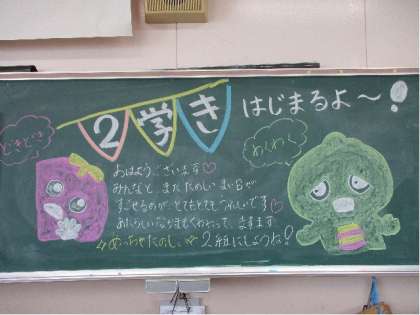 2学き はじまるよ～!
どきどき
わくわく
おはようございます♡
みんなと、またたのしいまい日が
すごせるのが、とてもとてもうれしいです♡
あたらしいなかまもくわわって、ますます
☆めっちゃたのしい☆2組にしようね!